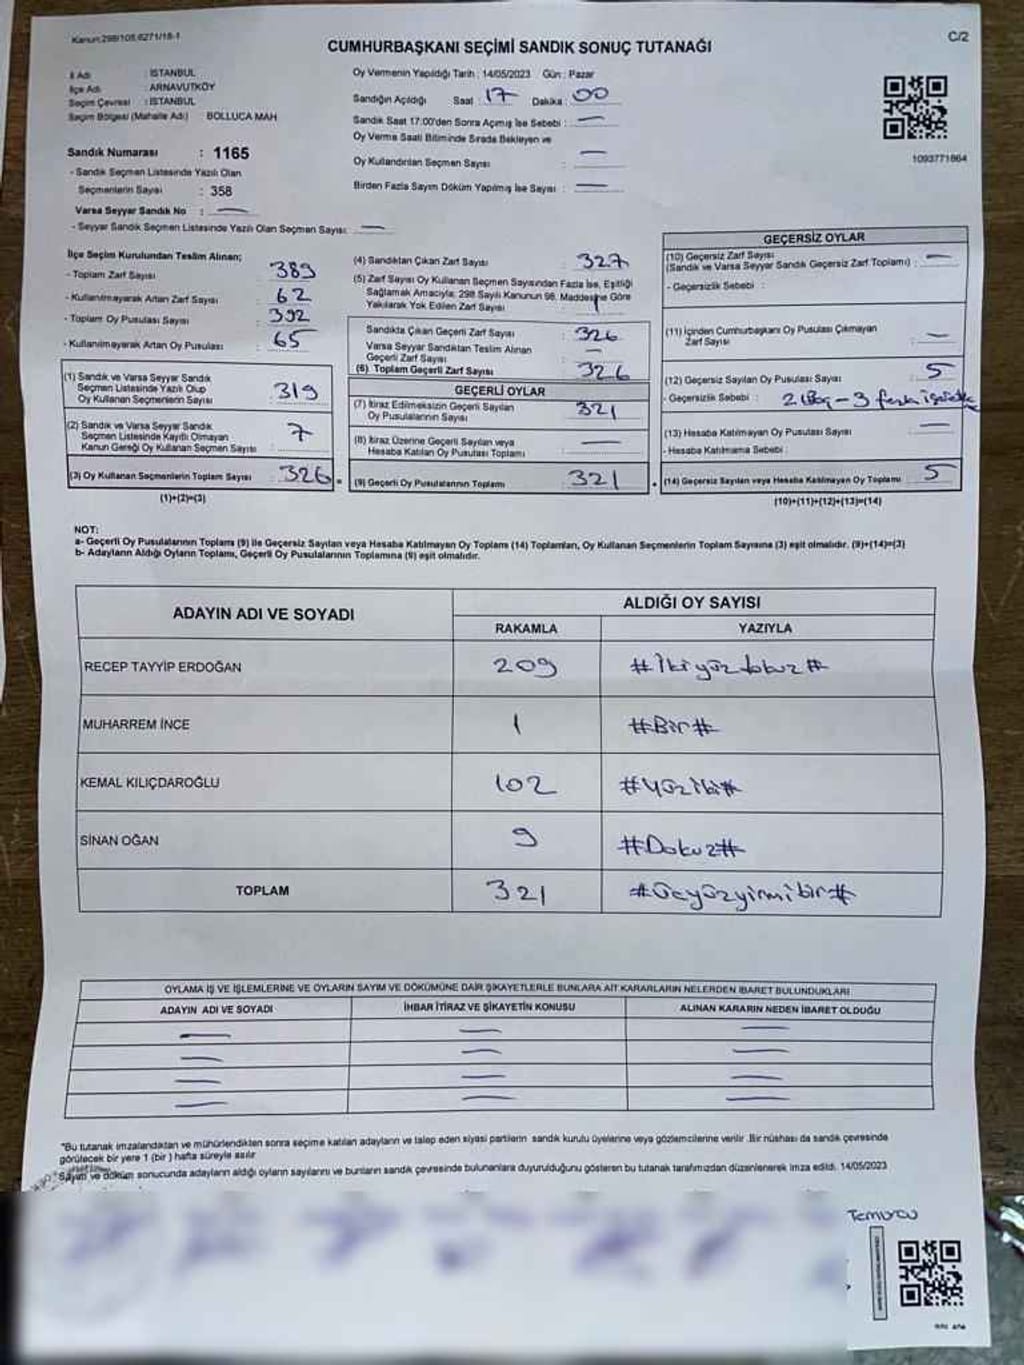 Kanun:298/105,6271/18-1
C/2
CUMHURBAŞKANI SEÇİMİ SANDIK SONUÇ TUTANAĞI
İl Adı : İSTANBUL
İlçe Adı : ARNAVUTKÖY
Seçim Çevresi : İSTANBUL
Seçim Bölgesi (Mahalle Adı) BOLLUCA MAH
Sandık Numarası : 1165
- Sandık Seçmen Listesinde Yazılı Olan
Seçmenlerin Sayısı : 358
Varsa Seyyar Sandık No : —
- Seyyar Sandık Seçmen Listesinde Yazılı Olan Seçmen Sayısı: —
Oy Vermenin Yapıldığı Tarih : 14/05/2023 Gün : Pazar
Sandığın Açıldığı Saat : 17 Dakika : 00
Sandık Saat 17:00'den Sonra Açmış İse Sebebi : —
Oy Verme Saati Bitiminde Sırada Bekleyen ve
Oy Kullandırılan Seçmen Sayısı : —
Birden Fazla Sayım Döküm Yapılmış İse Sayısı : —
1093771864
İlçe Seçim Kurulundan Teslim Alınan;
- Toplam Zarf Sayısı : 389
- Kullanılmayarak Artan Zarf Sayısı : 62
- Toplam Oy Pusulası Sayısı : 392
- Kullanılmayarak Artan Oy Pusulası : 65
(1) Sandık ve Varsa Seyyar Sandık
Seçmen Listesinde Yazılı Olup
Oy Kullanan Seçmenlerin Sayısı : 319
(2) Sandık ve Varsa Seyyar Sandık
Seçmen Listesinde Kayıtlı Olmayan
Kanun Gereği Oy Kullanan Seçmen Sayısı : 7
(3) Oy Kullanan Seçmenlerin Toplam Sayısı : 326
(1)+(2)=(3)
(4) Sandıktan Çıkan Zarf Sayısı : 327
(5) Zarf Sayısı Oy Kullanan Seçmen Sayısından Fazla İse, Eşitliği
Sağlamak Amacıyla; 298 Sayılı Kanunun 98. Maddesine Göre
Yakılarak Yok Edilen Zarf Sayısı : 1
Sandıkta Çıkan Geçerli Zarf Sayısı : 326
Varsa Seyyar Sandıktan Teslim Alınan
Geçerli Zarf Sayısı : —
(6) Toplam Geçerli Zarf Sayısı : 326
GEÇERLİ OYLAR
(7) İtiraz Edilmeksizin Geçerli Sayılan
Oy Pusulalarının Sayısı : 321
(8) İtiraz Üzerine Geçerli Sayılan veya
Hesaba Katılan Oy Pusulası Toplamı : —
(9) Geçerli Oy Pusulalarının Toplamı : 321
GEÇERSİZ OYLAR
(10) Geçersiz Zarf Sayısı
(Sandık ve Varsa Seyyar Sandık Geçersiz Zarf Toplamı) : —
- Geçersizlik Sebebi :
(11) İçinden Cumhurbaşkanı Oy Pusulası Çıkmayan
Zarf Sayısı : —
(12) Geçersiz Sayılan Oy Pusulası Sayısı : 5
- Geçersizlik Sebebi : 2 Boş - 3
(13) Hesaba Katılmayan Oy Pusulası Sayısı : —
- Hesaba Katılmama Sebebi :
(14) Geçersiz Sayılan veya Hesaba Katılmayan Oy Toplamı : 5
(10)+(11)+(12)+(13)=(14)
NOT:
a- Geçerli Oy Pusulalarının Toplamı (9) ile Geçersiz Sayılan veya Hesaba Katılmayan Oy Toplamı (14) Toplamları, Oy Kullanan Seçmenlerin Toplam Sayısına (3) eşit olmalıdır. (9)+(14)=(3)
b- Adayların Aldığı Oyların Toplamı, Geçerli Oy Pusulalarının Toplamına (9) eşit olmalıdır.
ADAYIN ADI VE SOYADI ALDIĞI OY SAYISI
RAKAMLA YAZIYLA
RECEP TAYYİP ERDOĞAN 209 #İkiyüzdokuz#
MUHARREM İNCE 1 #Bir#
KEMAL KILIÇDAROĞLU 102 #Yüziki#
SİNAN OĞAN 9 #Dokuz#
TOPLAM 321 #Üçyüzyirmibir#
OYLAMA İŞ VE İŞLEMLERİNE VE OYLARIN SAYIM VE DÖKÜMÜNE DAİR ŞİKAYETLERLE BUNLARA AİT KARARLARIN NELERDEN İBARET BULUNDUKLARI
ADAYIN ADI VE SOYADI İHBAR İTİRAZ VE ŞİKAYETİN KONUSU ALINAN KARARIN NEDEN İBARET OLDUĞU
— — —
— — —
— — —
— — —
*Bu tutanak imzalandıktan ve mühürlendikten sonra seçime katılan adayların ve talep eden siyasi partilerin sandık kurulu üyelerine veya gözlemcilerine verilir .Bir nüshası da sandık çevresinde
görülecek bir yere 1 (bir ) hafta süreyle asılır
Sayım ve döküm sonucunda adayların aldığı oyların sayılarını ve bunların sandık çevresinde bulunanlara duyurulduğunu gösteren bu tutanak tarafımızdan düzenlenerek imza edildi. 14/05/2023
Temurcu